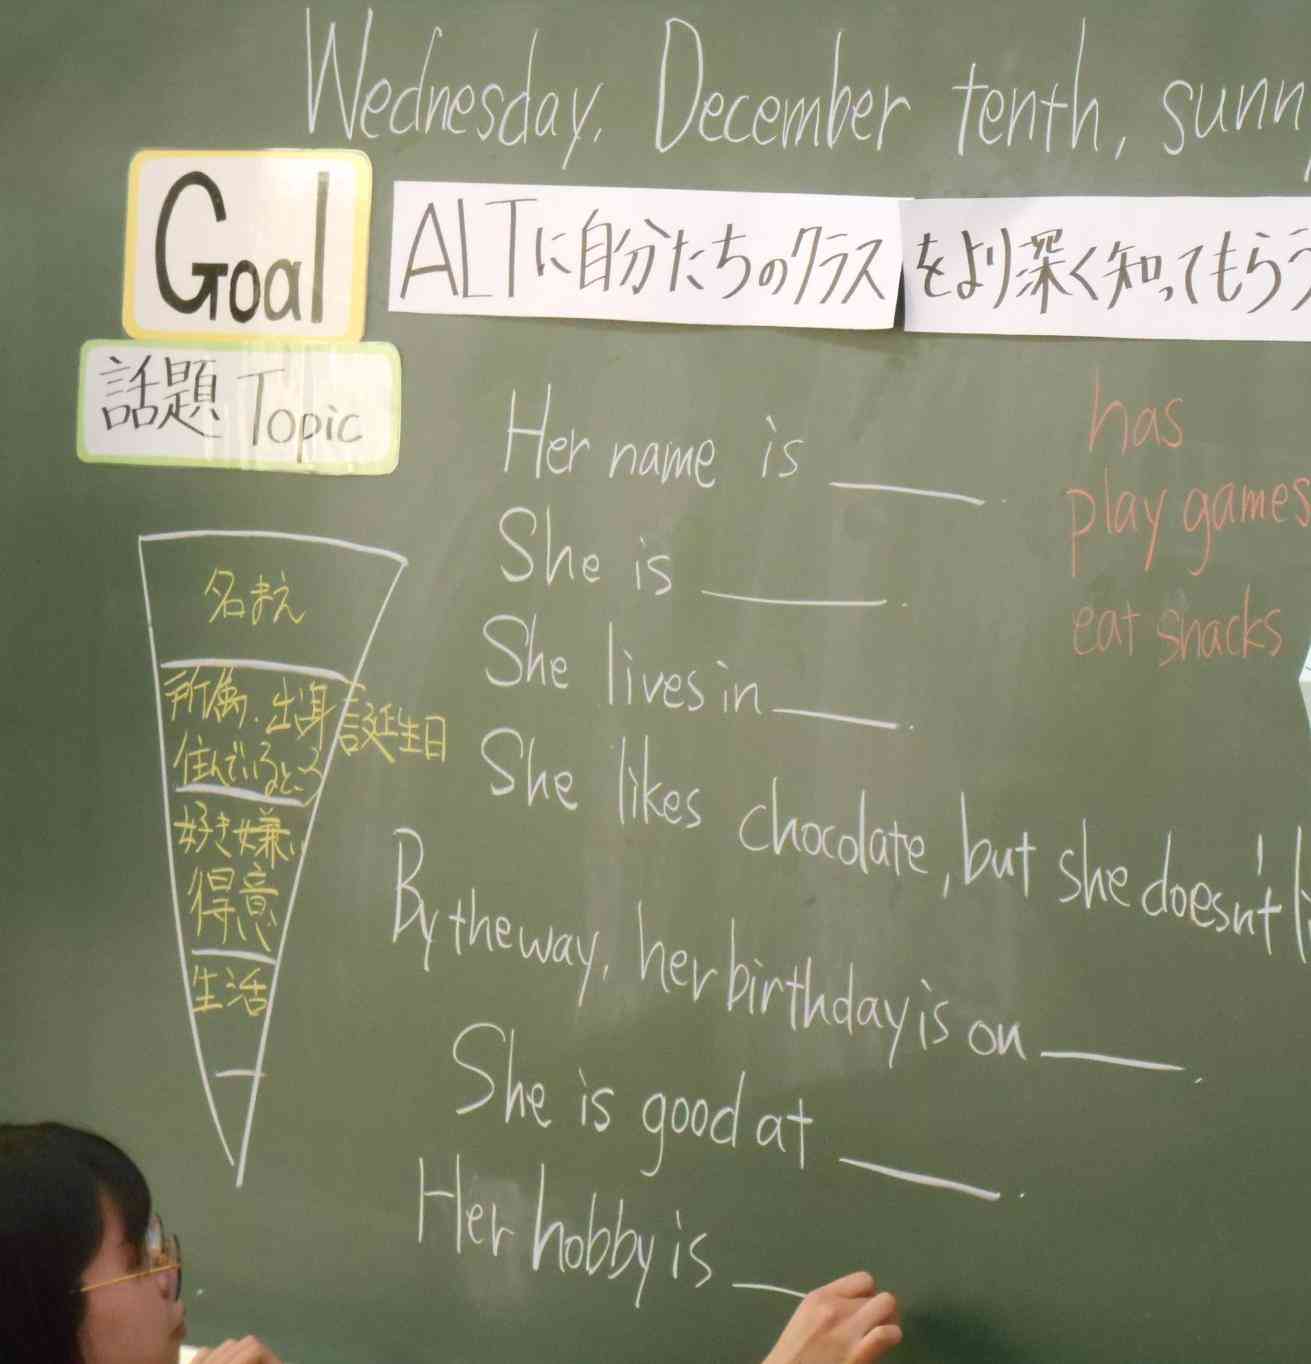 Wednesday, December tenth, sunny
Goal
ALTに自分たちのクラスをより深く知ってもらう
話題 Topic
Her name is ______.
She is ______.
She lives in ______.
She likes chocolate, but she doesn't li
By the way, her birthday is on ______.
She is good at ______.
Her hobby is ____
has
play games
eat snacks
名まえ
所属・出身 誕生日
住んでいるところ
好き嫌い
得意
生活